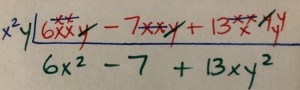 x²y 6xxxxy - 7xxy + 13xxxyyy
6x² - 7 + 13xy²